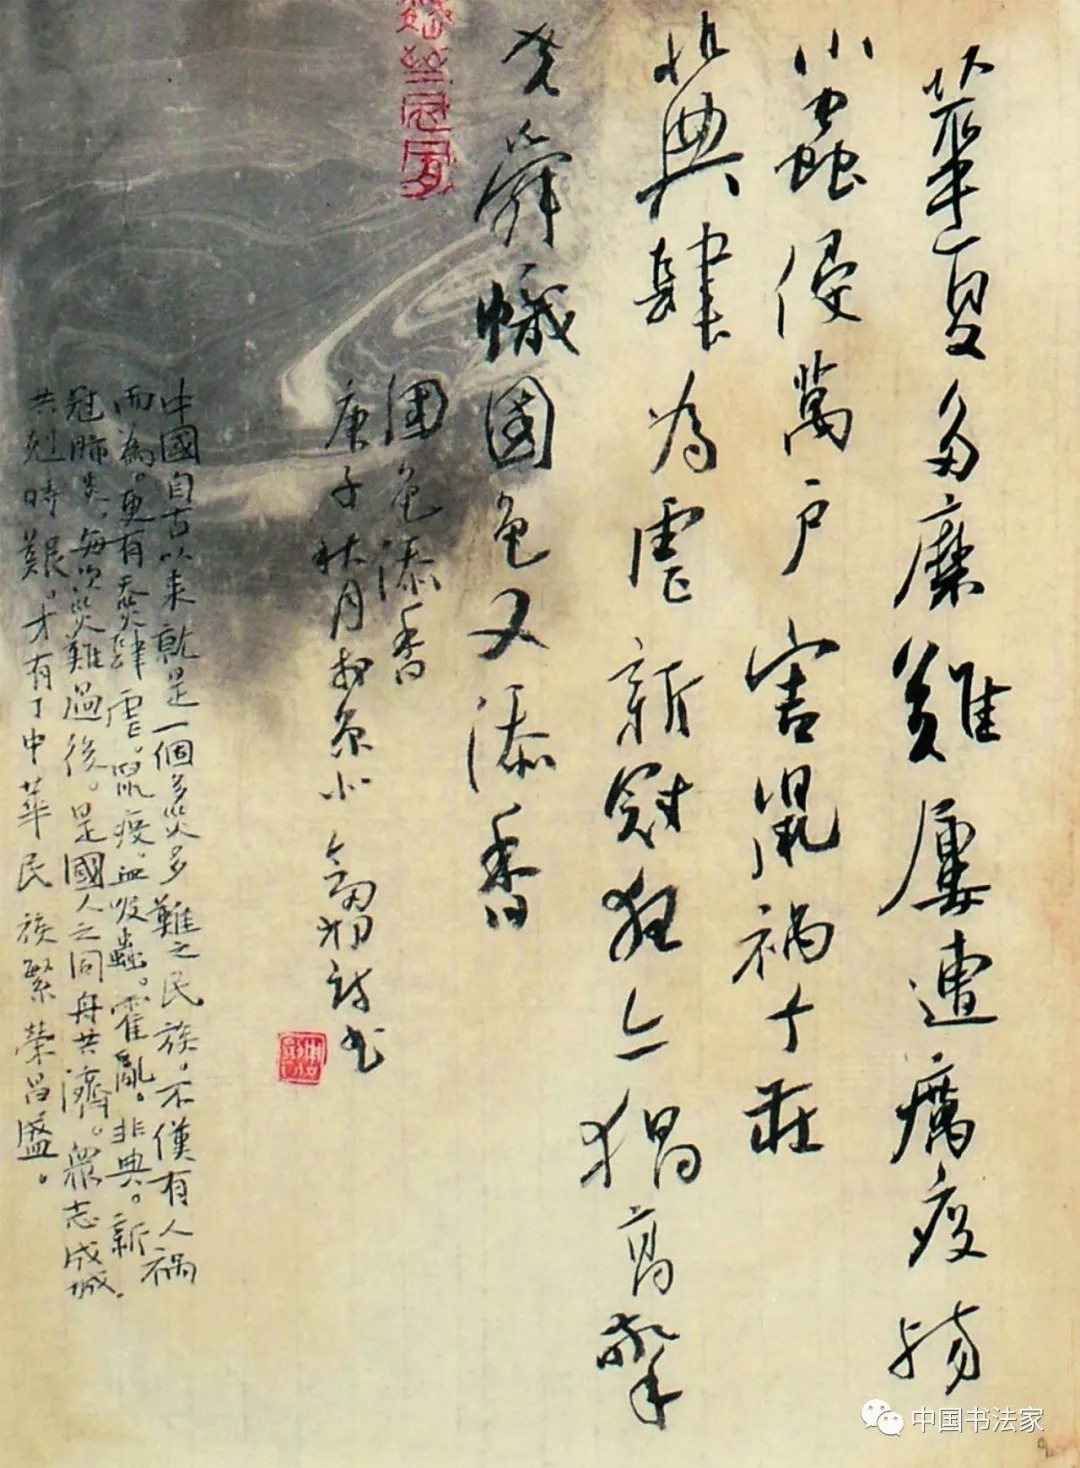 華夏多麋難屢遭癘疫殤
小蟲侵萬户害鼠禍千莊
非典肆為虐新冠狂亦猖高擎
堯舜幟國色又添香
國色添香
庚子秋月於京小翁 詩書
中國自古以来就是一個多災多難之民族。不僅有人禍
而為。更有天災肆虐。鼠疫。血吸蟲。霍亂。非典。新
冠肺炎。每次災難過後。是國人之同舟共濟。眾志成城.
共剋時艱。才有了中華民族繁榮昌盛。
中国书法家